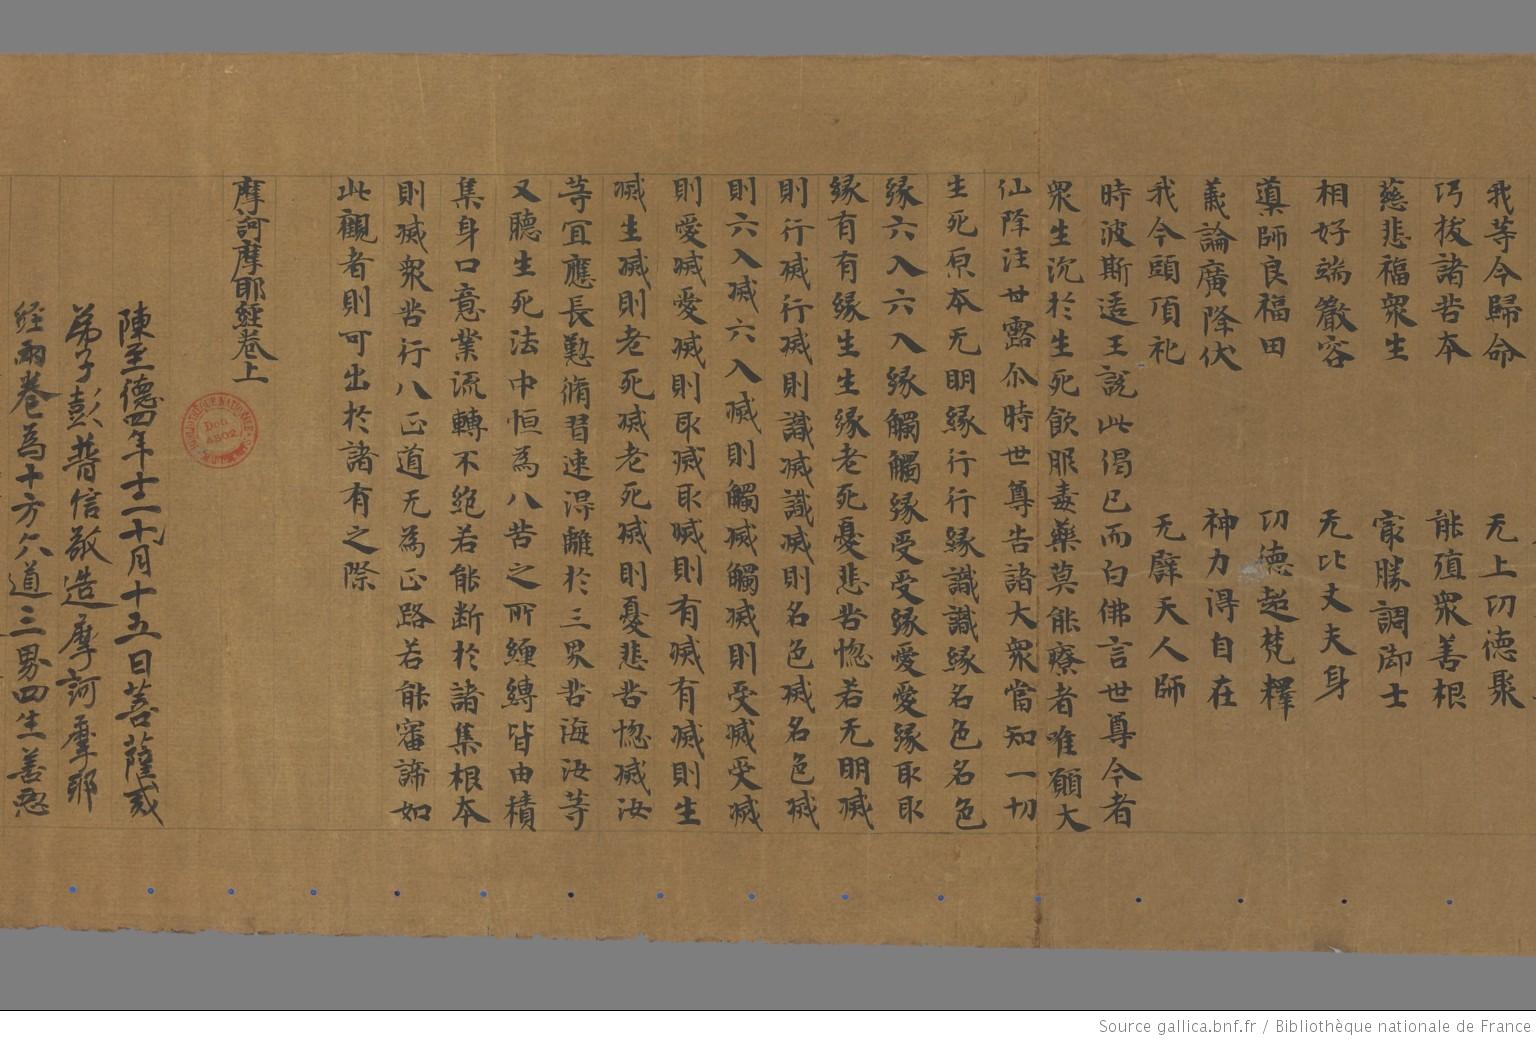 我等今歸命　无上功德聚
巧拔諸苦本　能殖衆善根
慈悲福衆生　冣勝調御士
相好端嚴容　无比丈夫身
真師良福田　功德超梵釋
義論廣降伏　神力得自在
我今頭頂礼　无辟天人師
時波斯匿王說此偈已而白佛言世尊今者
衆生沉於生死飲服毒藥莫能療者唯願大
仙降注甘露尒時世尊告諸大衆當知一切
生死原本无明緣行行緣識識緣名色名色
緣六入六入緣觸觸緣受受緣愛愛緣取取
緣有有緣生生緣老死憂悲苦惱若无明滅
則行滅行滅則識滅識滅則名色滅名色滅
則六入滅六入滅則觸滅觸滅則受滅受滅
則愛滅愛滅則取滅取滅則有滅有滅則生
滅生滅則老死滅老死滅則憂悲苦惱滅汝
等冝應長懃脩習速得離於三界苦海汝等
又聽生死法中恒為八苦之所纏縛皆由積
集身口意業流轉不絕若能断於諸集根本
則滅衆苦行八正道无為正路若能審諦如
此觀者則可出於諸有之際
摩訶摩耶經卷上
陳至德四年十二月十五日菩薩戒
弟子彭普信敬造摩訶摩耶
經兩卷為十方六道三界四生善惡
Doñ
4502
Source gallica.bnf.fr / Bibliothèque nationale de France